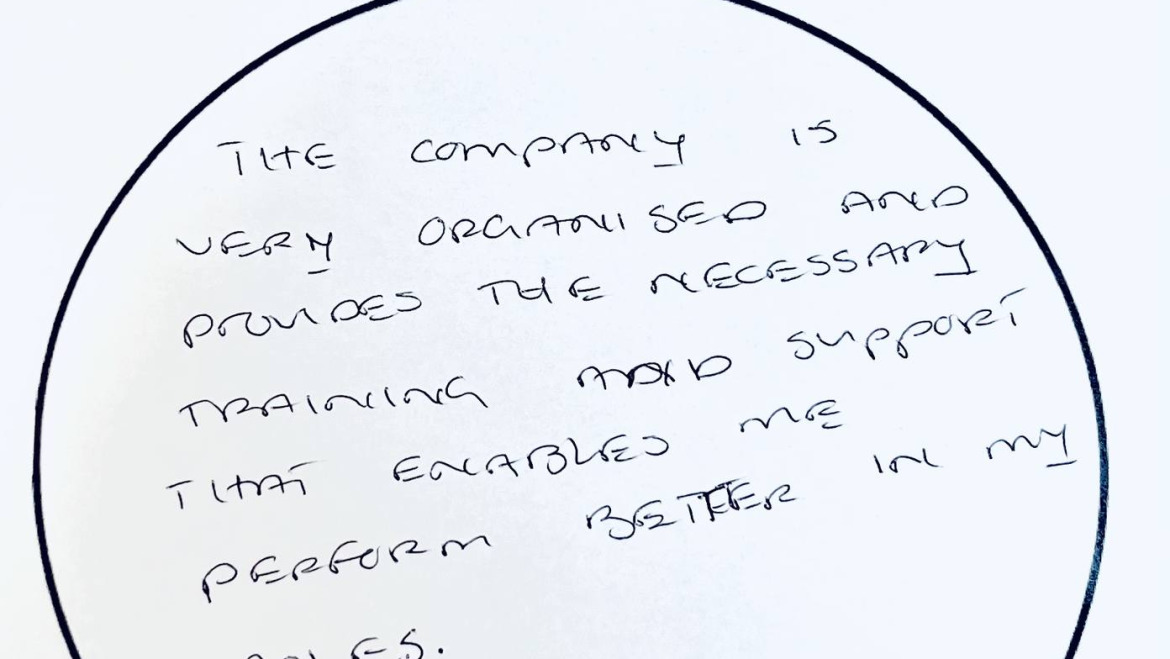 THE COMPANY IS
VERY ORGANISED AND
PROVIDES THE NECESSARY
TRAINING AND SUPPORT
THAT ENABLES ME
PERFORM BETTER IN MY